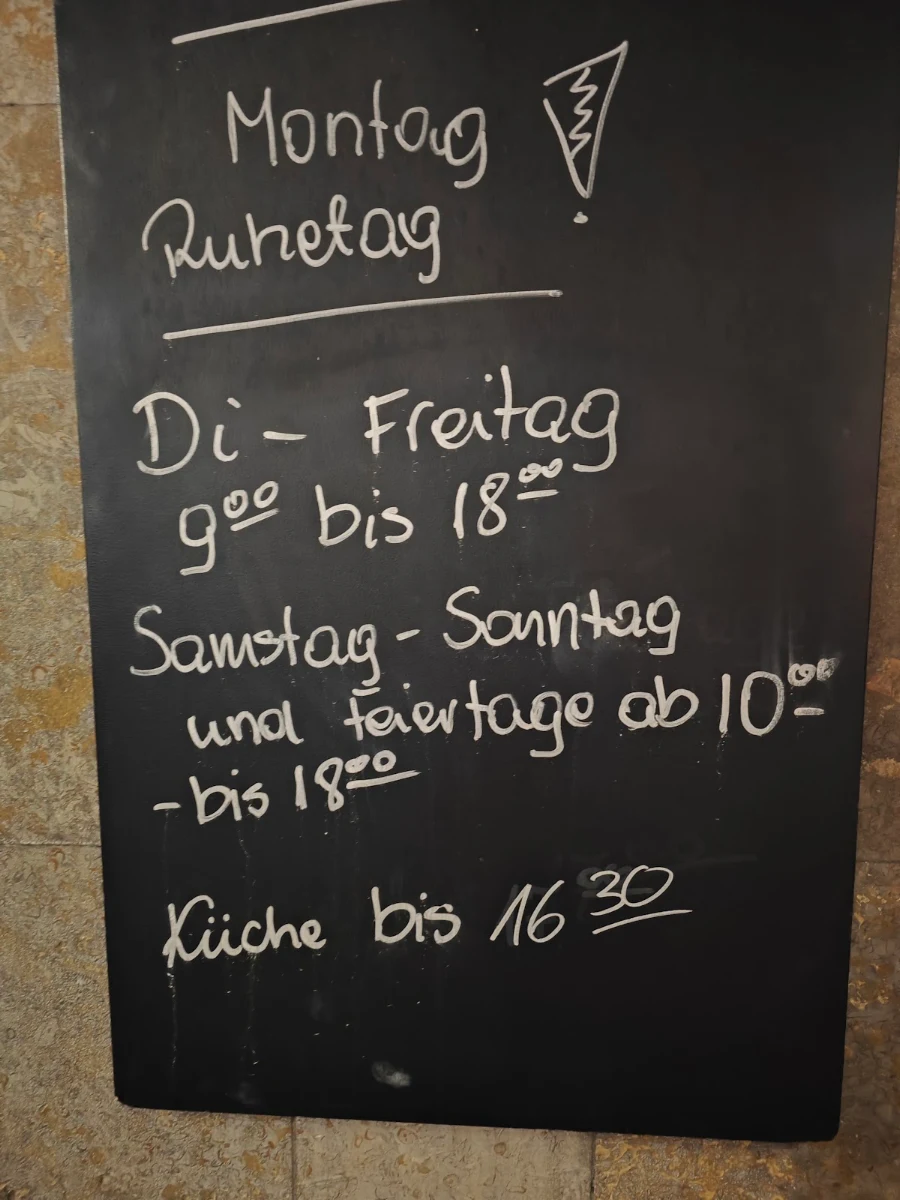 Montag !
Ruhetag
Di - Freitag
9⁰⁰ bis 18⁰⁰
Samstag - Sonntag
und feiertage ab 10⁰⁰
- bis 18⁰⁰
Küche bis 16³⁰